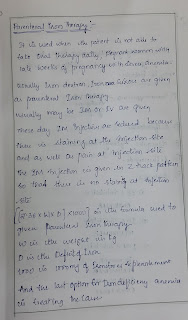 Parenteral Iron Therapy :-
It is used when the patient is not able to
take oral therapy daily, pregnant women with
late weeks of pregnancy with Severe Anaemia
Usually Iron dextran, Iron Sucrose are given
as parenteral Iron therapy
usually may be Im or Iv are given
These day Im Injection are reduced because
there is staining at the injection site
and as well as pain at Injection site
The Im Injection is given in Z track pattern
so that there is no at Injection
site
[ 2.3 x W x D ] + 1000 is the formula used to
given Parenteral Iron therapy
W is the weight in kg
D is the Deficit of Iron
1000 is of Replenishment
And the last option for Iron deficiency anaemia
is treating the cause